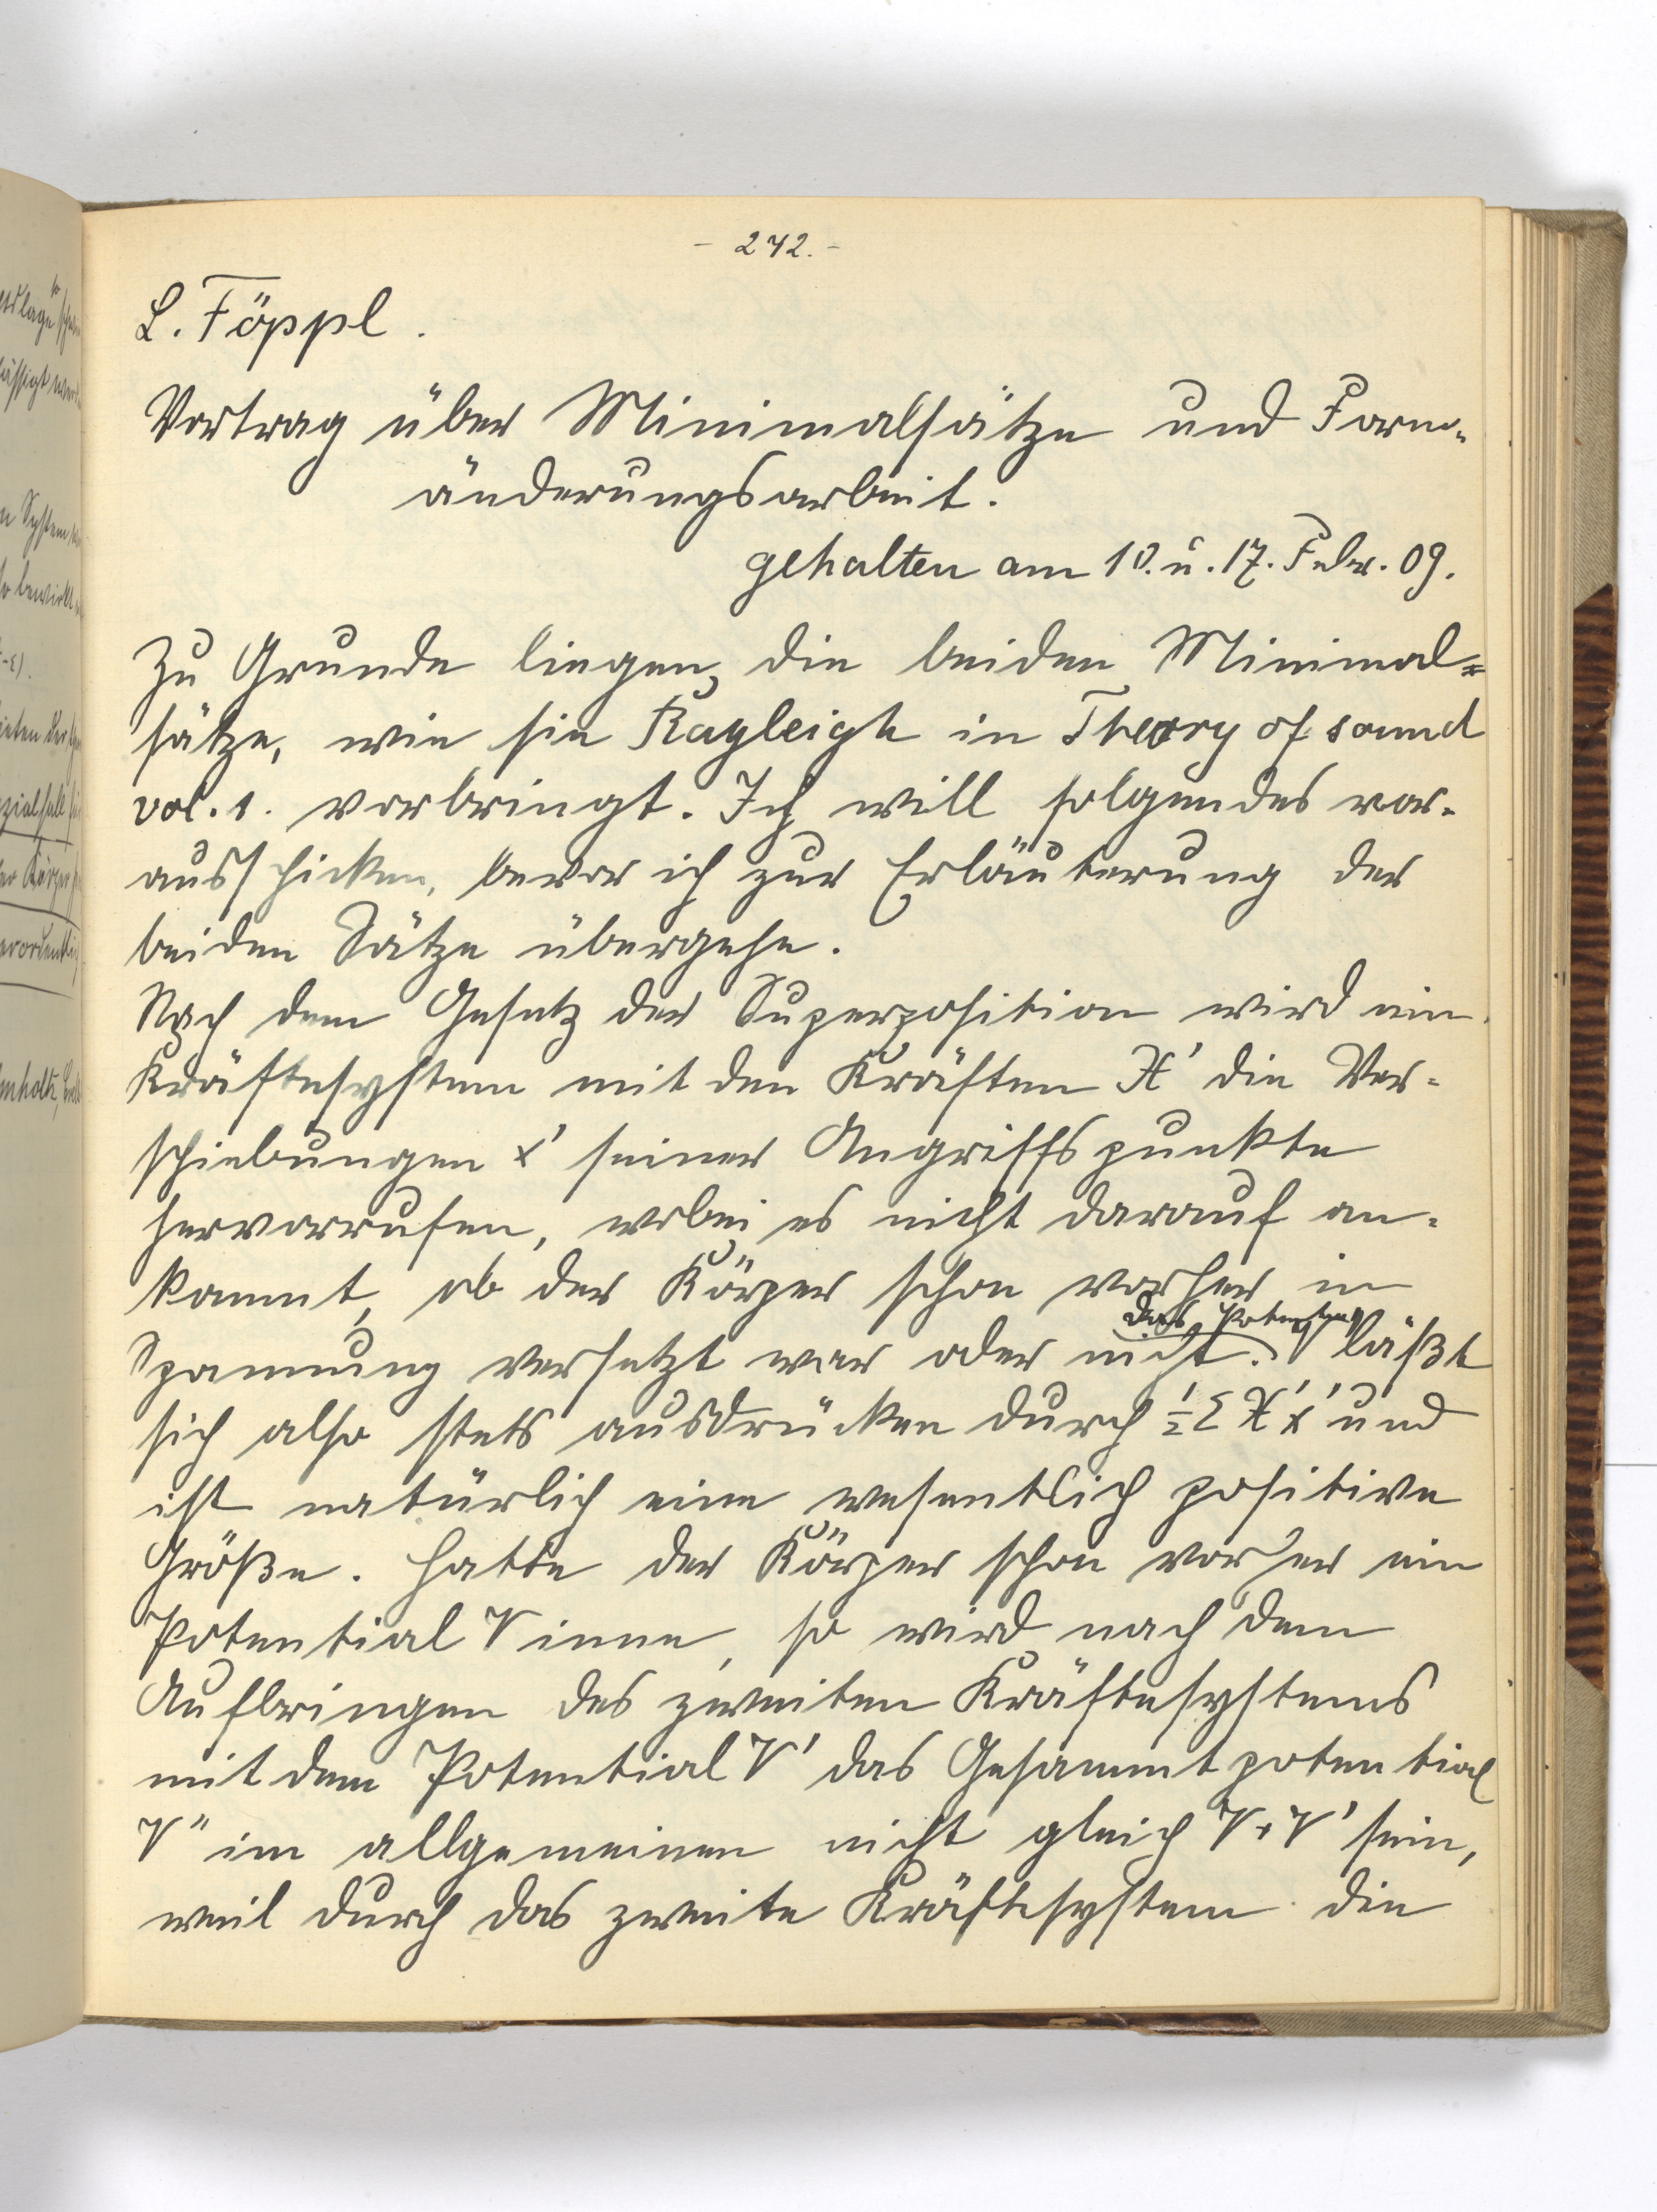 - 242. -
L. Föppl.
Vortrag über Minimalsätze und Form-
änderungsarbeit.
gehalten am 10. u. 17. Febr. 09.
Zu Grunde liegen die beiden Minimal-
sätze, wie sie Rayleigh in Theory of sound
vol. 1. vorbringt. Ich will folgendes vor-
ausschicken, bevor ich zur Erläuterung der
beiden Sätze übergehe.
Nach dem Gesetz der Superposition wird ein
Kräftesystem mit den Kräften X' die Ver-
schiebungen x' seiner Angriffspunkte
hervorrufen, wobei es nicht darauf an-
kommt, ob der Körper schon vorher in
Spannung versetzt war oder nicht. Das Potential läßt
sich also stets ausdrücken durch ½ Σ X'x' und
ist natürlich eine wesentlich positive
Größe. Hatte der Körper schon vorher ein
Potential V inne, so wird nach dem
Aufbringen des zweiten Kräftesystems
mit dem Potential V' das Gesammtpotential
V" im allgemeinen nicht gleich V+V' sein,
weil durch das zweite Kräftesystem die